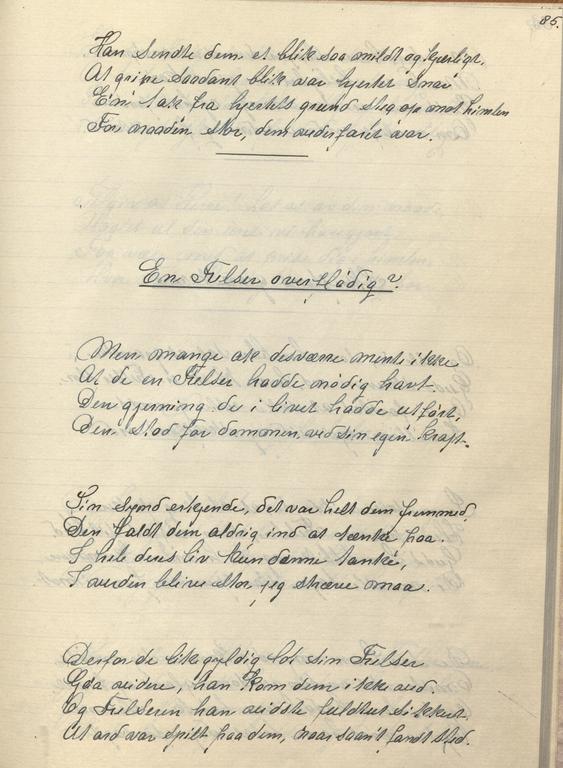 85.
Han sendte dem et blik saa mildt og kjærligt.
At gripe saadant blik var hjertet snar
En tak fra hjertets grund steg op mot himlen
For naaden stor, dem vederfaret var.
En Frelser overflødig?
Men mange ak desværre mente ikke
At de en Frelser hadde nødig havt.
Den gjerning de i livet hadde utført,
Den stod for dommen ved sin egen kraft.
Sin synd erkjende, det var helt dem fremmed,
Den faldt dem aldrig ind at tænke paa.
I hele deres liv kun denne tanke,
I verden blive stor, jeg stræve maa.
Derfor de likegyldig lot sin Frelser
Gaa videre, han kom dem ikke ved.
Og Frelseren han vidste fuldtut sikkert
At ord var spilt paa dem, naar saant fandt sted.